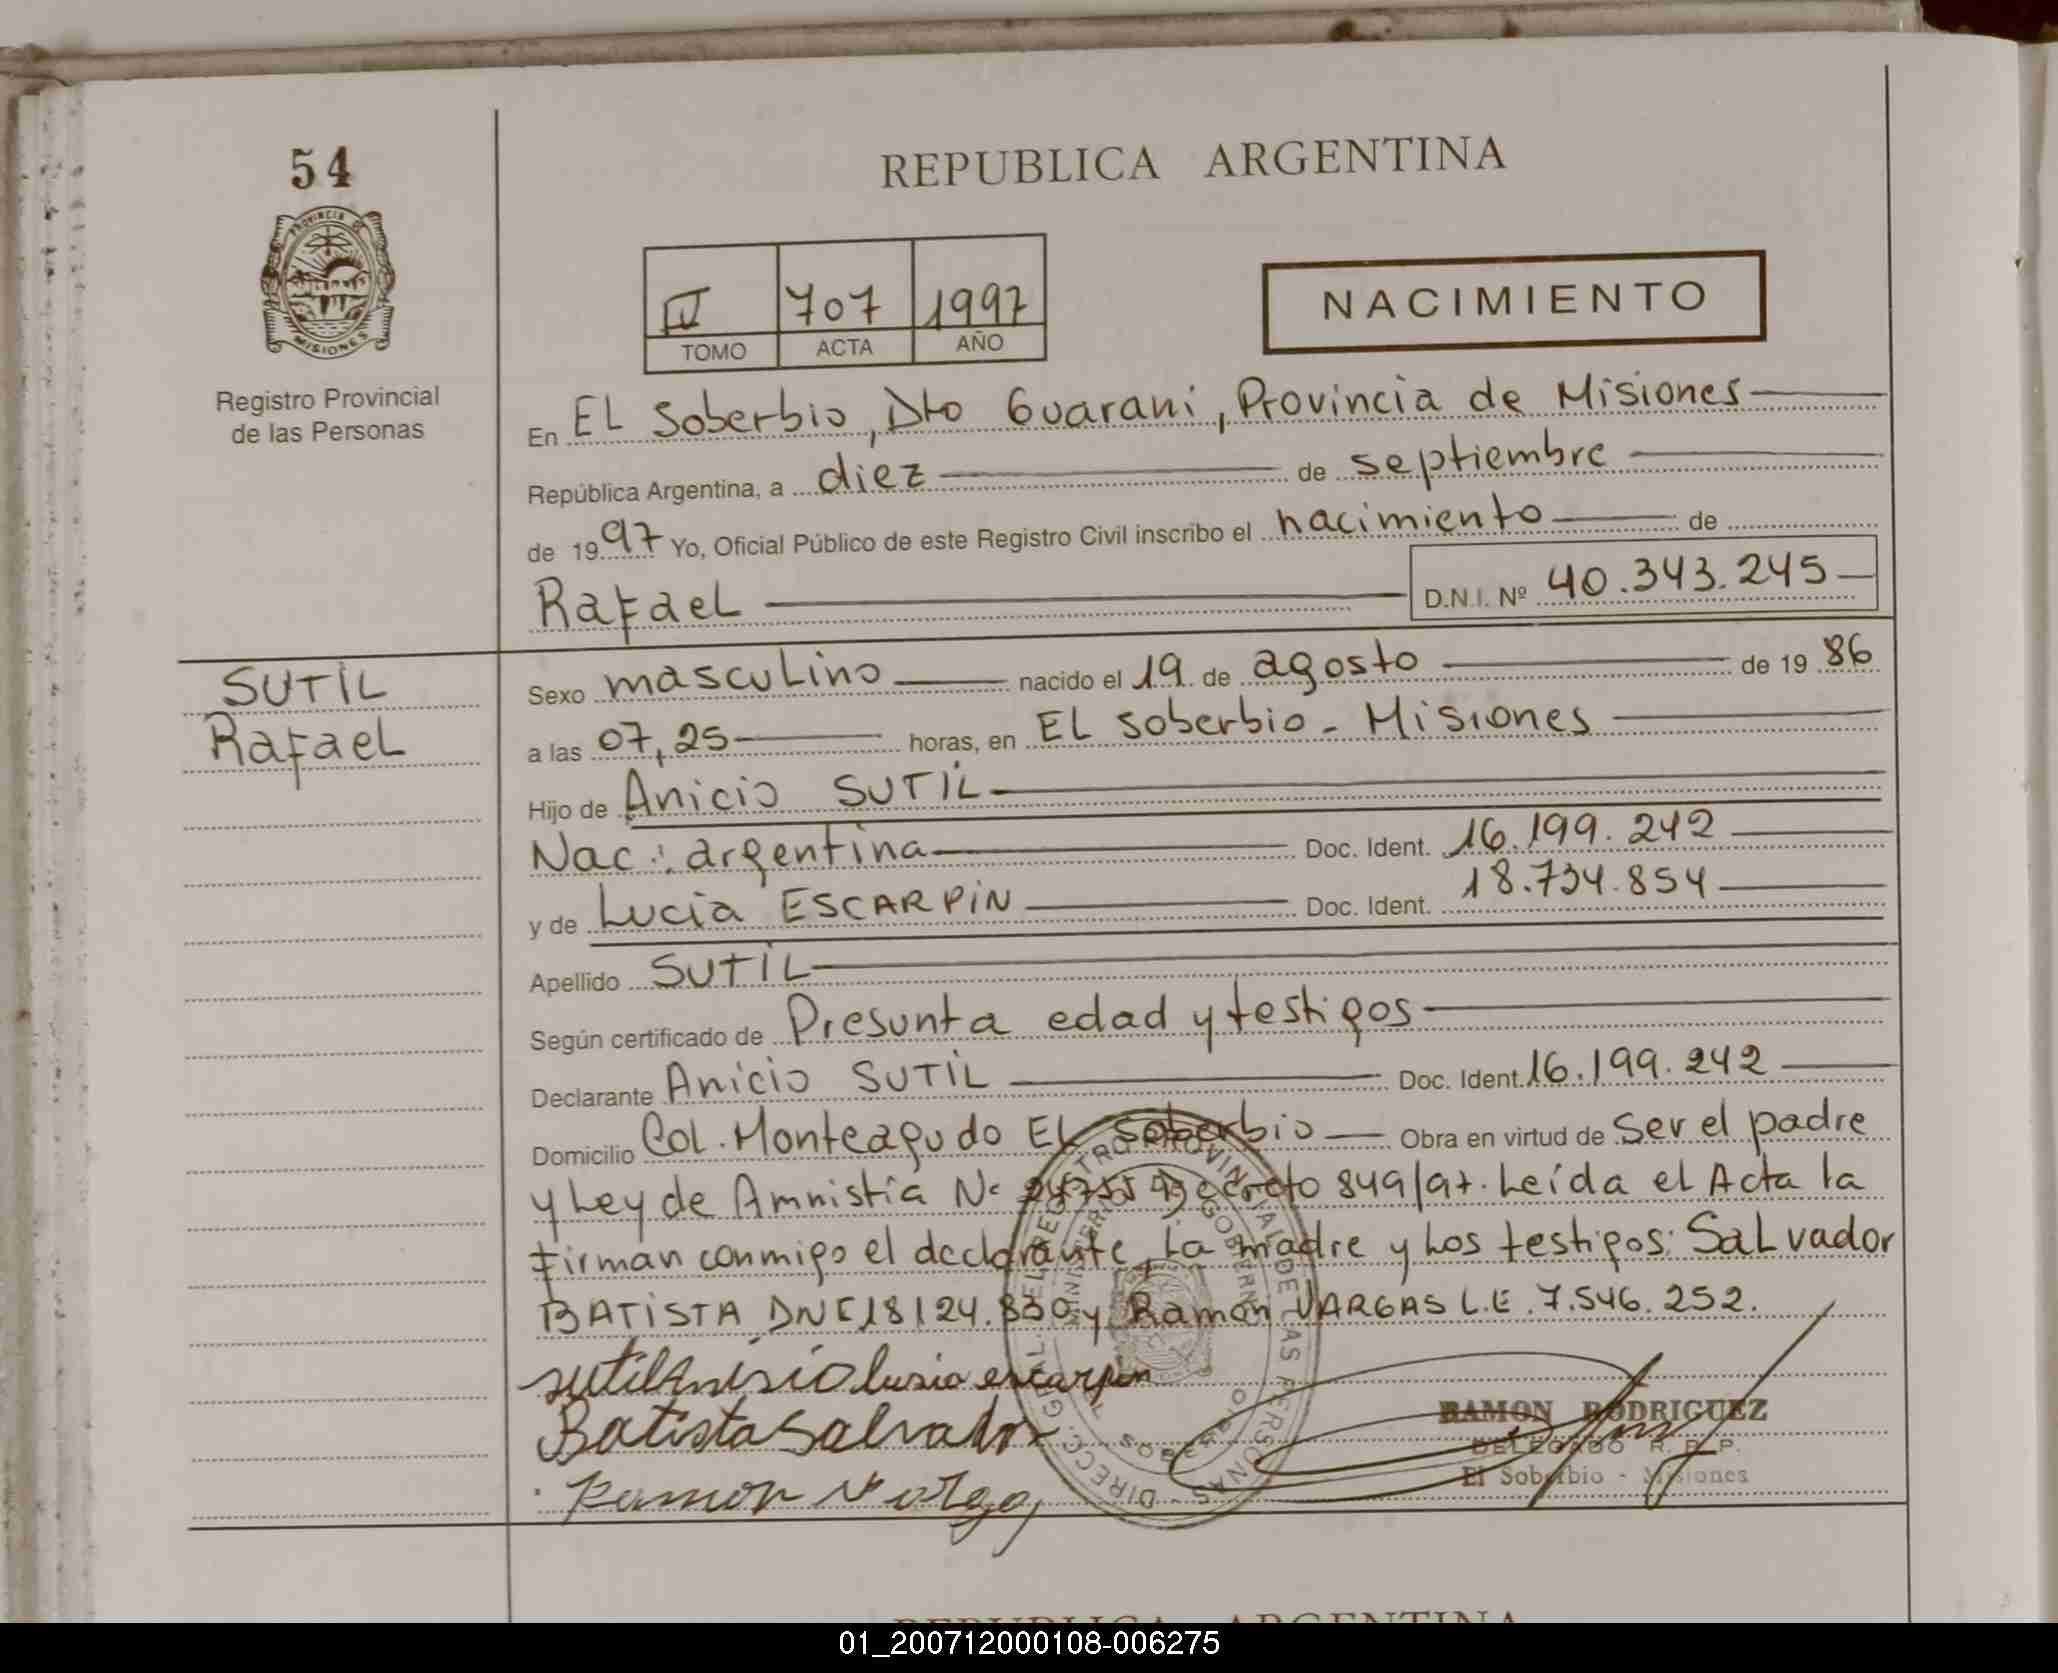 54
REPUBLICA ARGENTINA
PROVINCIA DE
MISIONES
Registro Provincial
de las Personas
IV 707 1997
TOMO ACTA AÑO
NACIMIENTO
En EL Soberbio, Dto Guarani, Provincia de Misiones
República Argentina, a diez de septiembre
de 1997 Yo, Oficial Público de este Registro Civil inscribo el nacimiento de
Rafael D.N.I. Nº 40.343.245
SUTIL
Rafael
Sexo masculino nacido el 19 de agosto de 1986
a las 07,25 horas, en EL Soberbio - Misiones
Hijo de Anicio SUTIL
Nac: argentina Doc. Ident. 16.199.242
y de Lucia ESCARPIN Doc. Ident. 18.734.854
Apellido SUTIL
Según certificado de Presunta edad y testigos
Declarante Anicio SUTIL Doc. Ident. 16.199.242
Domicilio Col. Monteagudo EL Soberbio Obra en virtud de Ser el padre
y Ley de Amnistía Nº Decreto 849/97. Leída el Acta la
firman conmigo el declarante, La madre y Los testigos: Salvador
BATISTA DNI 18124.830 y Ramon VARGAS L.E. 7.546.252.
sutil Anisio lusia escarpin
Batista Salvador
Ramon Vargas
RAMON RODRIGUEZ
DELEGADO R. P. P.
El Soberbio - Misiones
DIRECC. GRAL. DEL REGISTRO PROVINCIAL DE LAS PERSONAS
MINISTERIO GOBIERNO
SOBERBIO
REPUBLICA ARGENTINA
01_200712000108-006275